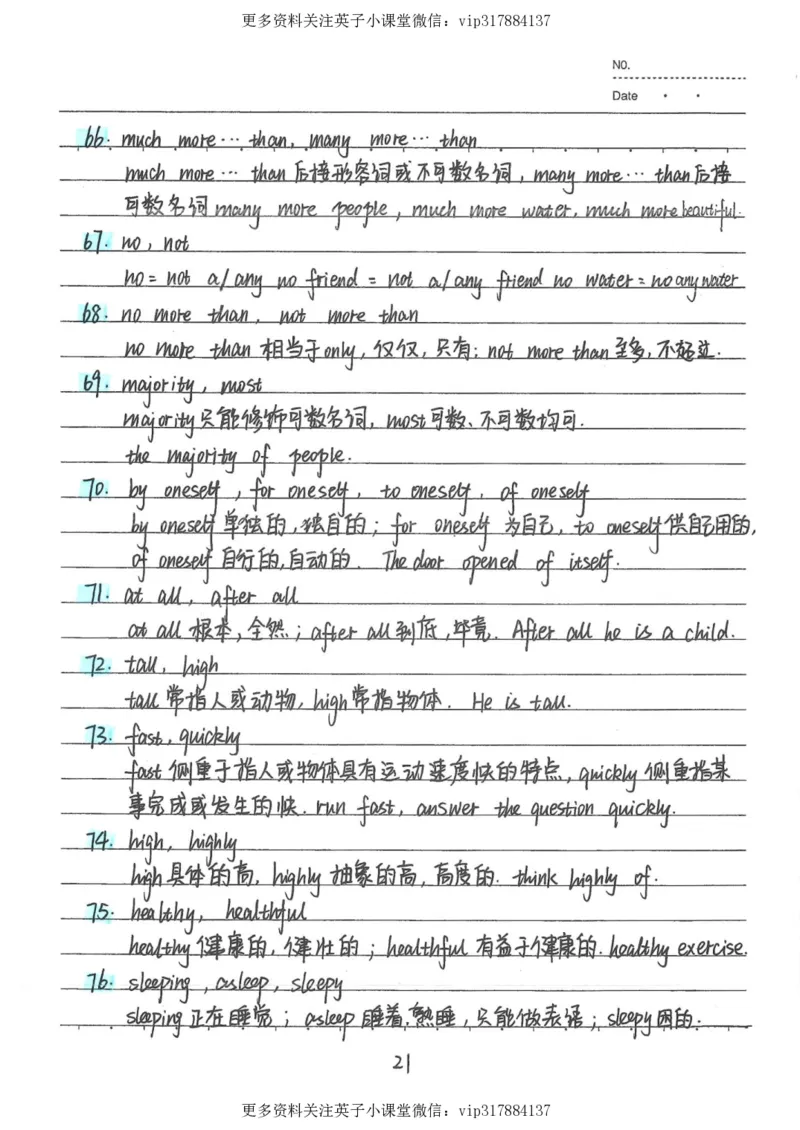 更多资料关注英子小课堂微信：vip317884137
NO.
Date
66. much more… than, many more… than
much more… than后接形容词或不可数名词，many more… than后接
可数名词 many more people, much more water, much more beautiful.
67. no, not
no = not a/any no friend = not a/any friend no water = no any water
68. no more than, not more than
no more than相当于only，仅仅，只有；not more than至多，不超过.
69. majority, most
majority只能修饰可数名词，most可数、不可数均可.
the majority of people.
70. by oneself, for oneself, to oneself, of oneself
by oneself单独的，独自的；for oneself 为自己，to oneself供自己用的，
of oneself自行的，自动的. The door opened of itself.
71. at all, after all
at all 根本，全然；after all到底，毕竟. After all he is a child.
72. tall, high
tall常指人或动物，high常指物体. He is tall.
73. fast, quickly
fast侧重于指人或物体具有运动速度快的特点，quickly侧重指某
事完成或发生的快. run fast, answer the question quickly.
74. high, highly
high具体的高, highly抽象的高，高度的. think highly of.
75. healthy, healthful
healthy健康的，健壮的；healthful有益于健康的. healthy exercise.
76. sleeping, asleep, sleepy
sleeping正在睡觉；asleep睡着，熟睡，只能做表语；sleepy困的.
21
更多资料关注英子小课堂微信：vip317884137